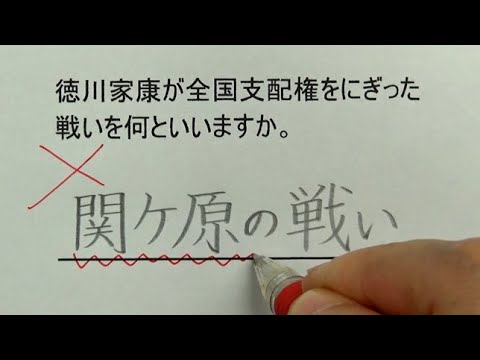 徳川家康が全国支配権をにぎった
戦いを何といいますか。
関ケ原の戦い